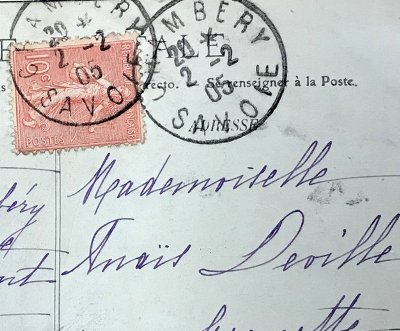 CHAMBERY
20 *
2 -2
05
SAVOIE
CHAMBERY
20 *
2 -2
05
SAVOIE
ALE
recto. Se renseigner à la Poste.
ADRESSE
10
POSTES
Mademoiselle
béry
Anaïs Deville